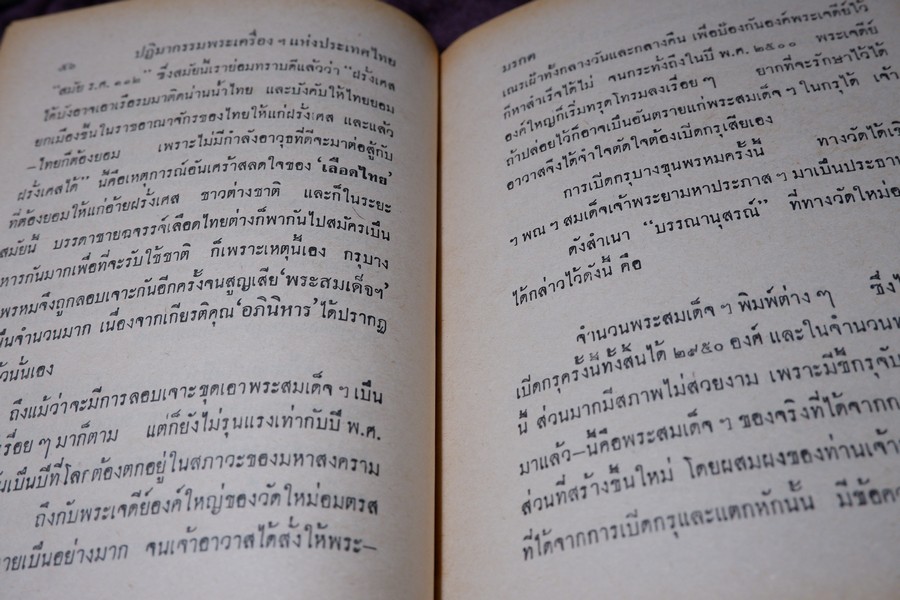 ๕๖ ปฏิมากรรมพระเครื่อง ฯ แห่งประเทศไทย
“สมัย ร.ศ. ๑๑๒” ซึ่งสมัยนี้เราย่อมทราบดีแล้วว่า “ฝรั่งเศส
ได้บังอาจเอาเรือรบมาติดน่านน้ำไทย และบังคับให้ไทยยอม
ยกเมืองขึ้นในราชอาณาจักรของไทยให้แก่ฝรั่งเศส และแล้ว
–ไทยก็ต้องยอม เพราะไม่มีกำลังอาวุธที่ดีจะมาต่อสู้กับ
ฝรั่งเศสได้” นี่คือเหตุการณ์อันเศร้าสลดใจของ ‘เลือดไทย’
ที่ต้องยอมให้แก่อ้ายฝรั่งเศส ชาวต่างชาติ และก็ในระยะ
สมัยนี้ บรรดาชายฉกรรจ์เลือดไทยต่างก็พากันไปสมัครเป็น
หารกันมากเพื่อที่จะรับใช้ชาติ ก็เพราะเหตุนี้เอง กรุบาง
พรหมจึงถูกลอบเจาะกันอีกครั้งจนสูญเสีย ‘พระสมเด็จฯ’
ป็นจำนวนมาก เนื่องจากเกียรติคุณ ‘อภินิหาร’ ได้ปรากฏ
วนั้นเอง
ถึงแม้ว่าจะมีการลอบเจาะขุดเอาพระสมเด็จ ฯ เป็น
รื่อย ๆ มาก็ตาม แต่ก็ยังไม่รุนแรงเท่ากับปี พ.ศ.
นเป็นปีที่โลกต้องตกอยู่ในสภาวะของมหาสงคราม
ถึงกับพระเจดีย์องค์ใหญ่ของวัดใหม่อมตรส
ายเป็นอย่างมาก จนเจ้าอาวาสได้สั่งให้พระ–
มรกต
เณรเฝ้าทั้งกลางวันและกลางคืน เพื่อป้องกันองค์พระเจดีย์ไว้
ก็หาสำเร็จได้ไม่ จนกระทั่งถึงในปี พ.ศ. ๒๕๐๐ พระเจดีย์
องค์ใหญ่ก็เริ่มทรุดโทรมลงเรื่อย ๆ ยากที่จะรักษาไว้ได้
ถ้าปล่อยไว้ก็อาจเป็นอันตรายแก่พระสมเด็จ ฯ ในกรุได้ เจ้า
อาวาสจึงได้จำใจตัดใจต้องเปิดกรุเสียเอง
การเปิดกรุบางขุนพรหมครั้งนี้ ทางวัดได้เชิ
ฯ พณ ฯ สมเด็จเจ้าพระยามหาประภาส ฯ มาเป็นประธาน
ดังสำเนา “บรรณานุสรณ์” ที่ทางวัดใหม่อ
ได้กล่าวไว้ดังนี้ คือ
จำนวนพระสมเด็จ ฯ พิมพ์ต่าง ๆ ซึ่งไ
เปิดกรุครั้งนี้ทั้งสิ้นได้ ๒๙๕๐ องค์ และในจำนวนพ
นี้ ส่วนมากมีสภาพไม่สวยงาม เพราะมีขี้กรุจับ
มาแล้ว–นี่คือพระสมเด็จ ฯ ของจริงที่ได้จากก
ส่วนที่สร้างขึ้นใหม่ โดยผสมผงของท่านเจ้า
ที่ได้จากการเปิดกรุและแตกหักนั้น มีข้อค